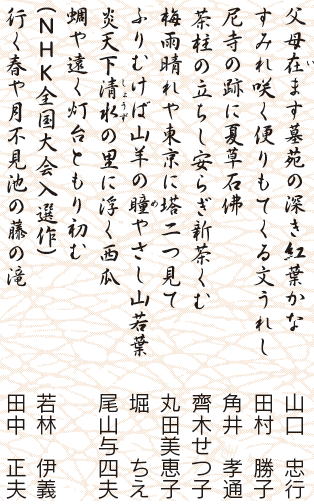 父母在ます墓苑の深き紅葉かな
い
山口 忠行
すみれ咲く便りもてくる文うれし
田村 勝子
尼寺の跡に夏草石佛
角井 孝通
茶柱の立ちし安らぎ新茶くむ
齊木せつ子
梅雨晴れや東京に塔二つ見て
丸田美恵子
ふりむけば山羊の瞳やさし山若葉
め
堀 ちえ
炎天下清水の里に浮く西瓜
しょうず
尾山与四夫
蜩や遠く灯台ともり初む
(NHK全国大会入選作)
若林 伊義
行く春や月不見池の藤の滝
田中 正夫